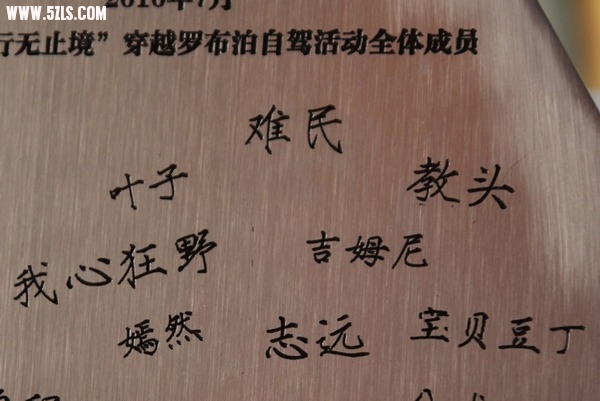 WWW.5ZLS.COM
2010年7月
行无止境”穿越罗布泊自驾活动全体成员
难民
叶子 教头
我心狂野 吉姆尼
嫣然 志远 宝贝豆丁